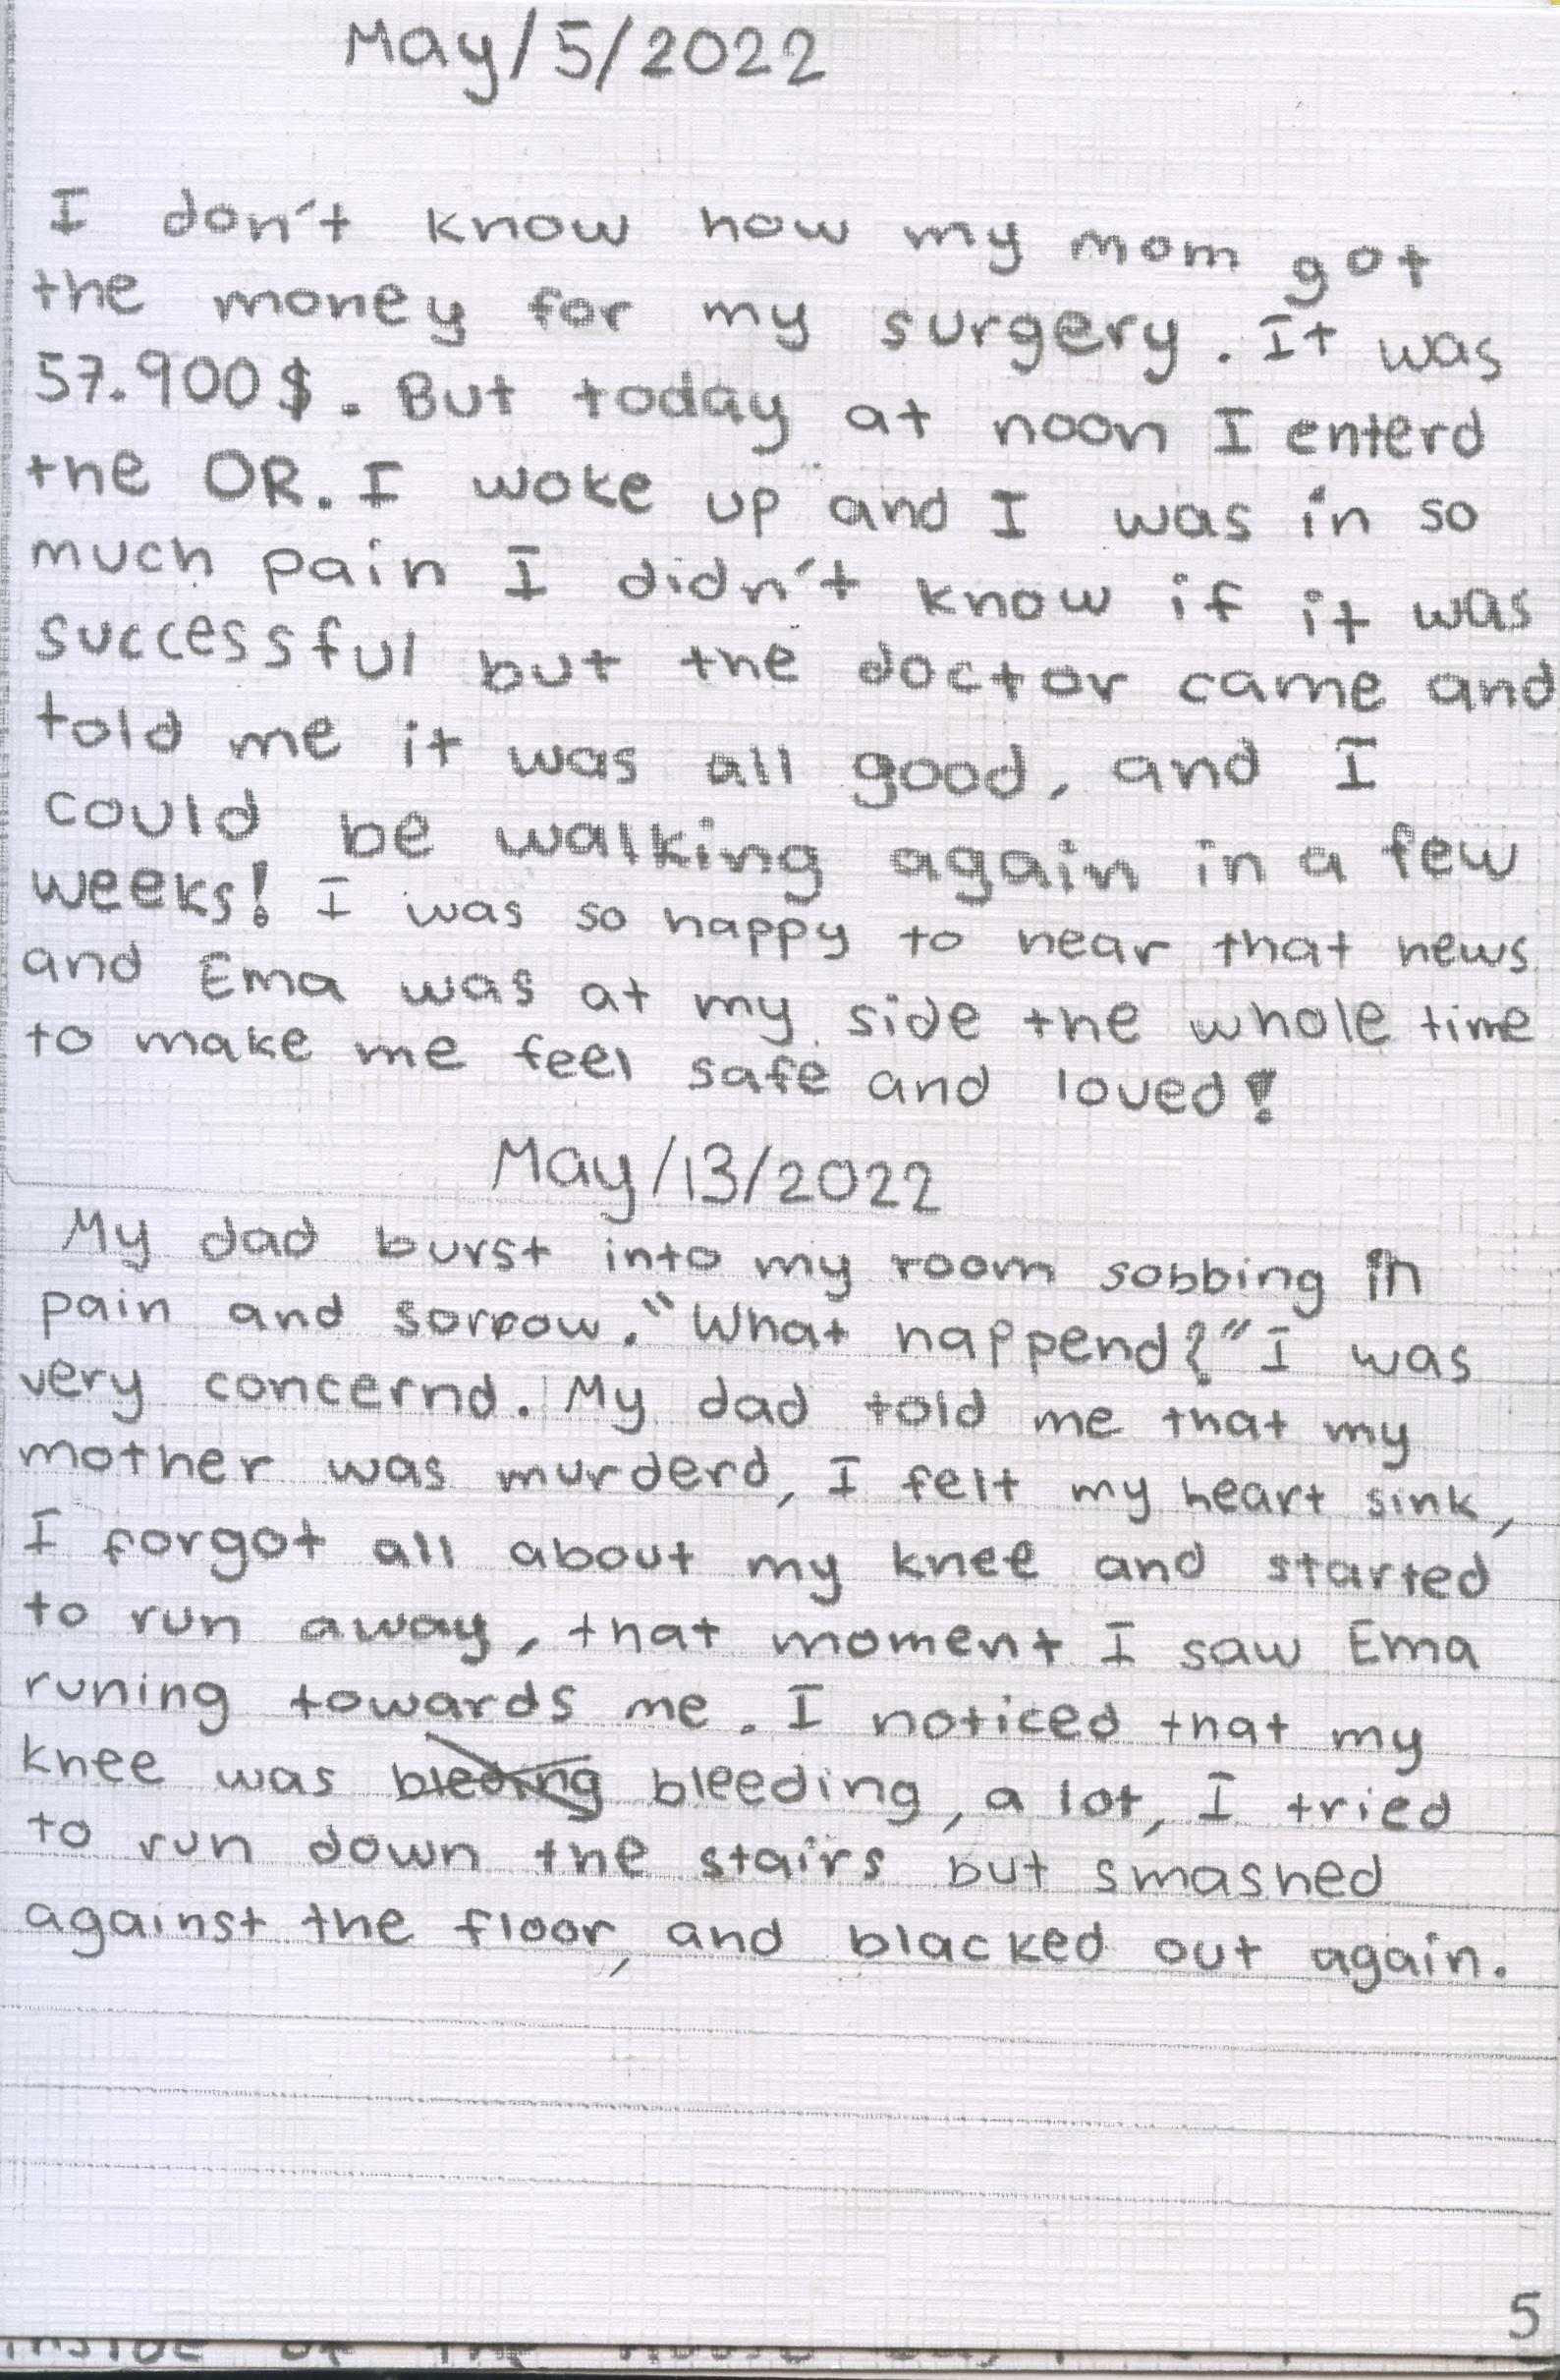 May/5/2022
I don't know how my mom got
the money for my surgery. It was
57.900$. But today at noon I enterd
the OR. I woke up and I was in so
much pain I didn't know if it was
successful but the doctor came and
told me it was all good, and I
could be walking again in a few
weeks! I was so happy to hear that news
and Ema was at my side the whole time
to make me feel safe and loved!
May/13/2022
My dad burst into my room sobbing in
pain and sorrow. "What happend?" I was
very concernd. My dad told me that my
mother was murderd, I felt my heart sink,
I forgot all about my knee and started
to run away, that moment I saw Ema
runing towards me. I noticed that my
knee was bleding bleeding, a lot, I tried
to run down the stairs but smashed
against the floor, and blacked out again.
5
inside of the